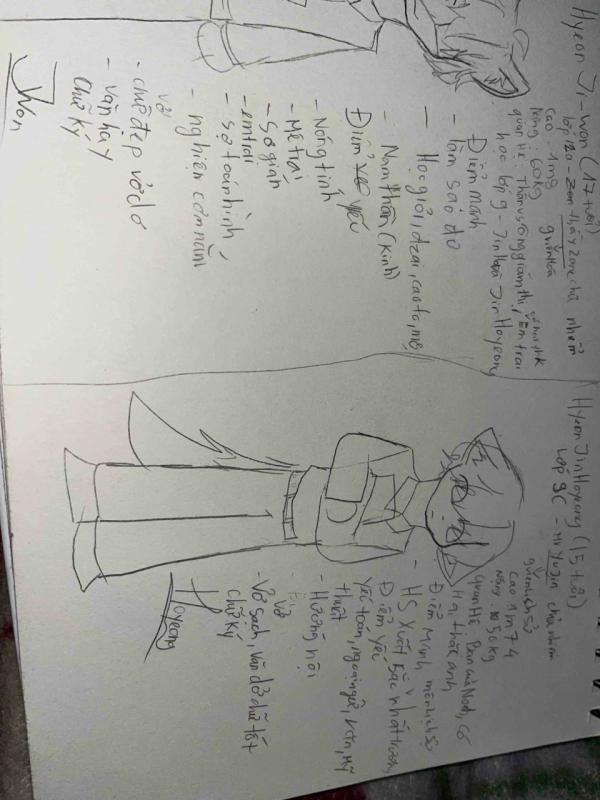 Hyeon Ji-won (17 tuổi)
lớp 12a - chủ nhiệm
Cao: 1m9
Nặng: 60kg
Quan hệ: Thần tượng giám thị, Em trai
học lớp 9 - Jin Hoyeong
Điểm mạnh
- làm sao đỏ
- Học giỏi, dzai, cao to,
- Nam thần (kính)
Điểm yếu
- Nóng tính
- Mê trai
- Sợ gián
- em trai
- sợ toán hình,
- nghiện cơm nắm
Vở
- chữ đẹp vở dơ
- văn hay
Chữ ký
JWon
Hyeon Jin Hoyeong (15 tuổi)
Lớp 9C - Mr YuJin chủ nhiệm
Cao 1m74
Nặng: 56kg
Quan hệ:
Hai thằng anh
Điểm mạnh, môn lịch sử
- HS xuất sắc nhất trường
Điểm yếu
Yếu toán, ngoại ngữ, văn, Mỹ
thuật
- Hướng nội
Vở
- Vở sạch, văn dở chữ tốt
Chữ ký
Hoyeong